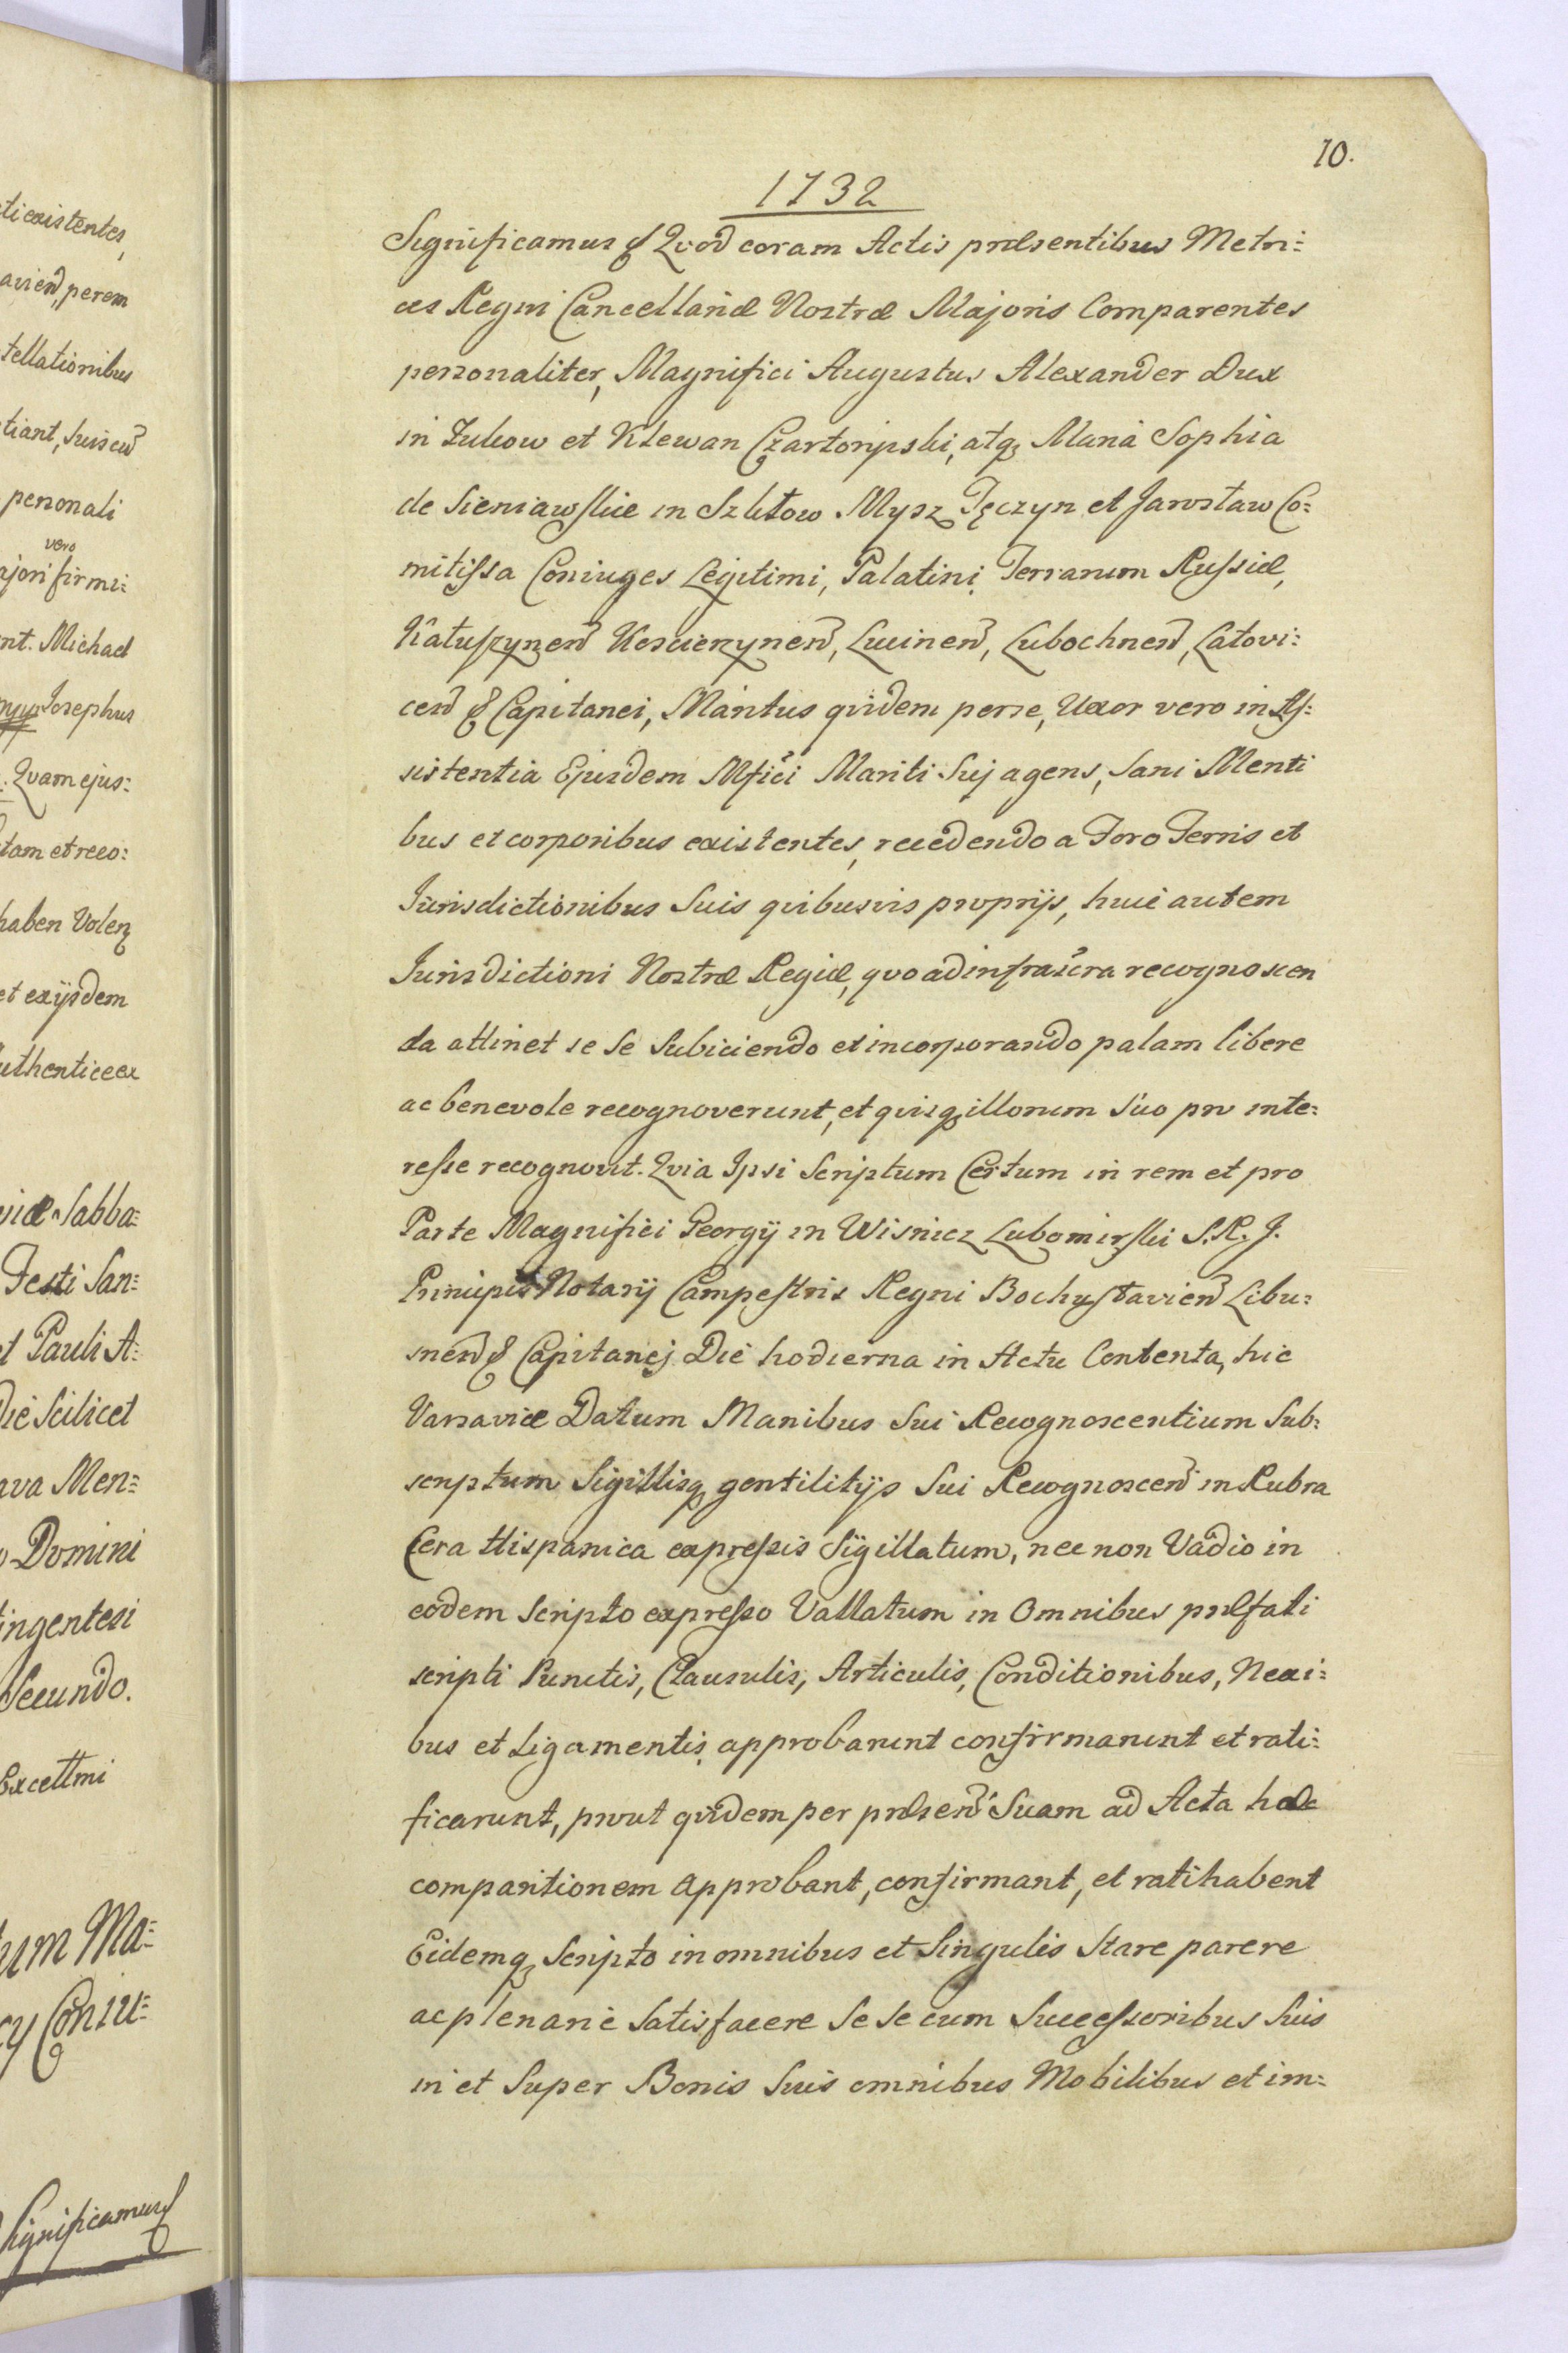 10.
1732
Significamus & Qvod coram Actis præsentibus Metri=
ces Regni Cancellariæ Nostræ Majoris Comparentes
personaliter, Magnifici Augustus Alexander Dux
in Zukow et Klewan Czartoryski, atq; Maria Sophia
de Sieniawskie in Szkłow Mysz Tęczyn et Jarosław Co=
mitissa Coniuges Legitimi, Palatini Terrarum Russiæ,
Kałuszynen Koscierzynen, Lucinen, Lubochnen, Latovi=
cen & Capitanei, Maritus qvidem per se, Uxor vero in As=
sistentia Ejusdem Mfici Mariti Suj agens, Sani Menti
bus et corporibus existentes, recedendo a Foro Terris et
Jurisdictionibus Suis qvibusvis proprijs, huic autem
Jurisdictioni Nostræ Regiæ, qvo ad infrascra recognoscen
da attinet se Se Subiciendo et incorporando palam libere
ac benevole recognoverunt, et qvisq; illorum Suo pro inte=
resse recognovit. Qvia Ipsi Scriptum Certum in rem et pro
Parte Magnifici Georgij in Wisnicz Lubomirski S. R. J.
Principis Notarij Campestris Regni Bohuslavien Libu=
snen & Capitanej Die hodierna in Actu Contenta, hic
Varsaviæ Datum Manibus Sui Recognoscentium Sub=
scriptum Sigillisq; gentilitijs Sui Recognoscen in Rubra
Cera Hispanica expressis Sigillatum, nec non Vadio in
eodem Scripto expresso Vallatum in Omnibus præfati
scripti Punctis, Clausulis, Articulis, Conditionibus, Nexi=
bus et Ligamentis approbarunt confirmarunt et rati=
ficarunt, prout qvidem per præsen Suam ad Acta hæc
comparitionem approbant, confirmant, et ratihabent
Eidemq; Scripto in omnibus et Singulis Stare parere
ac plenarie Satisfacere Se Se cum Successoribus Suis
in et Super Bonis Suis omnibus Mobilibus et im=